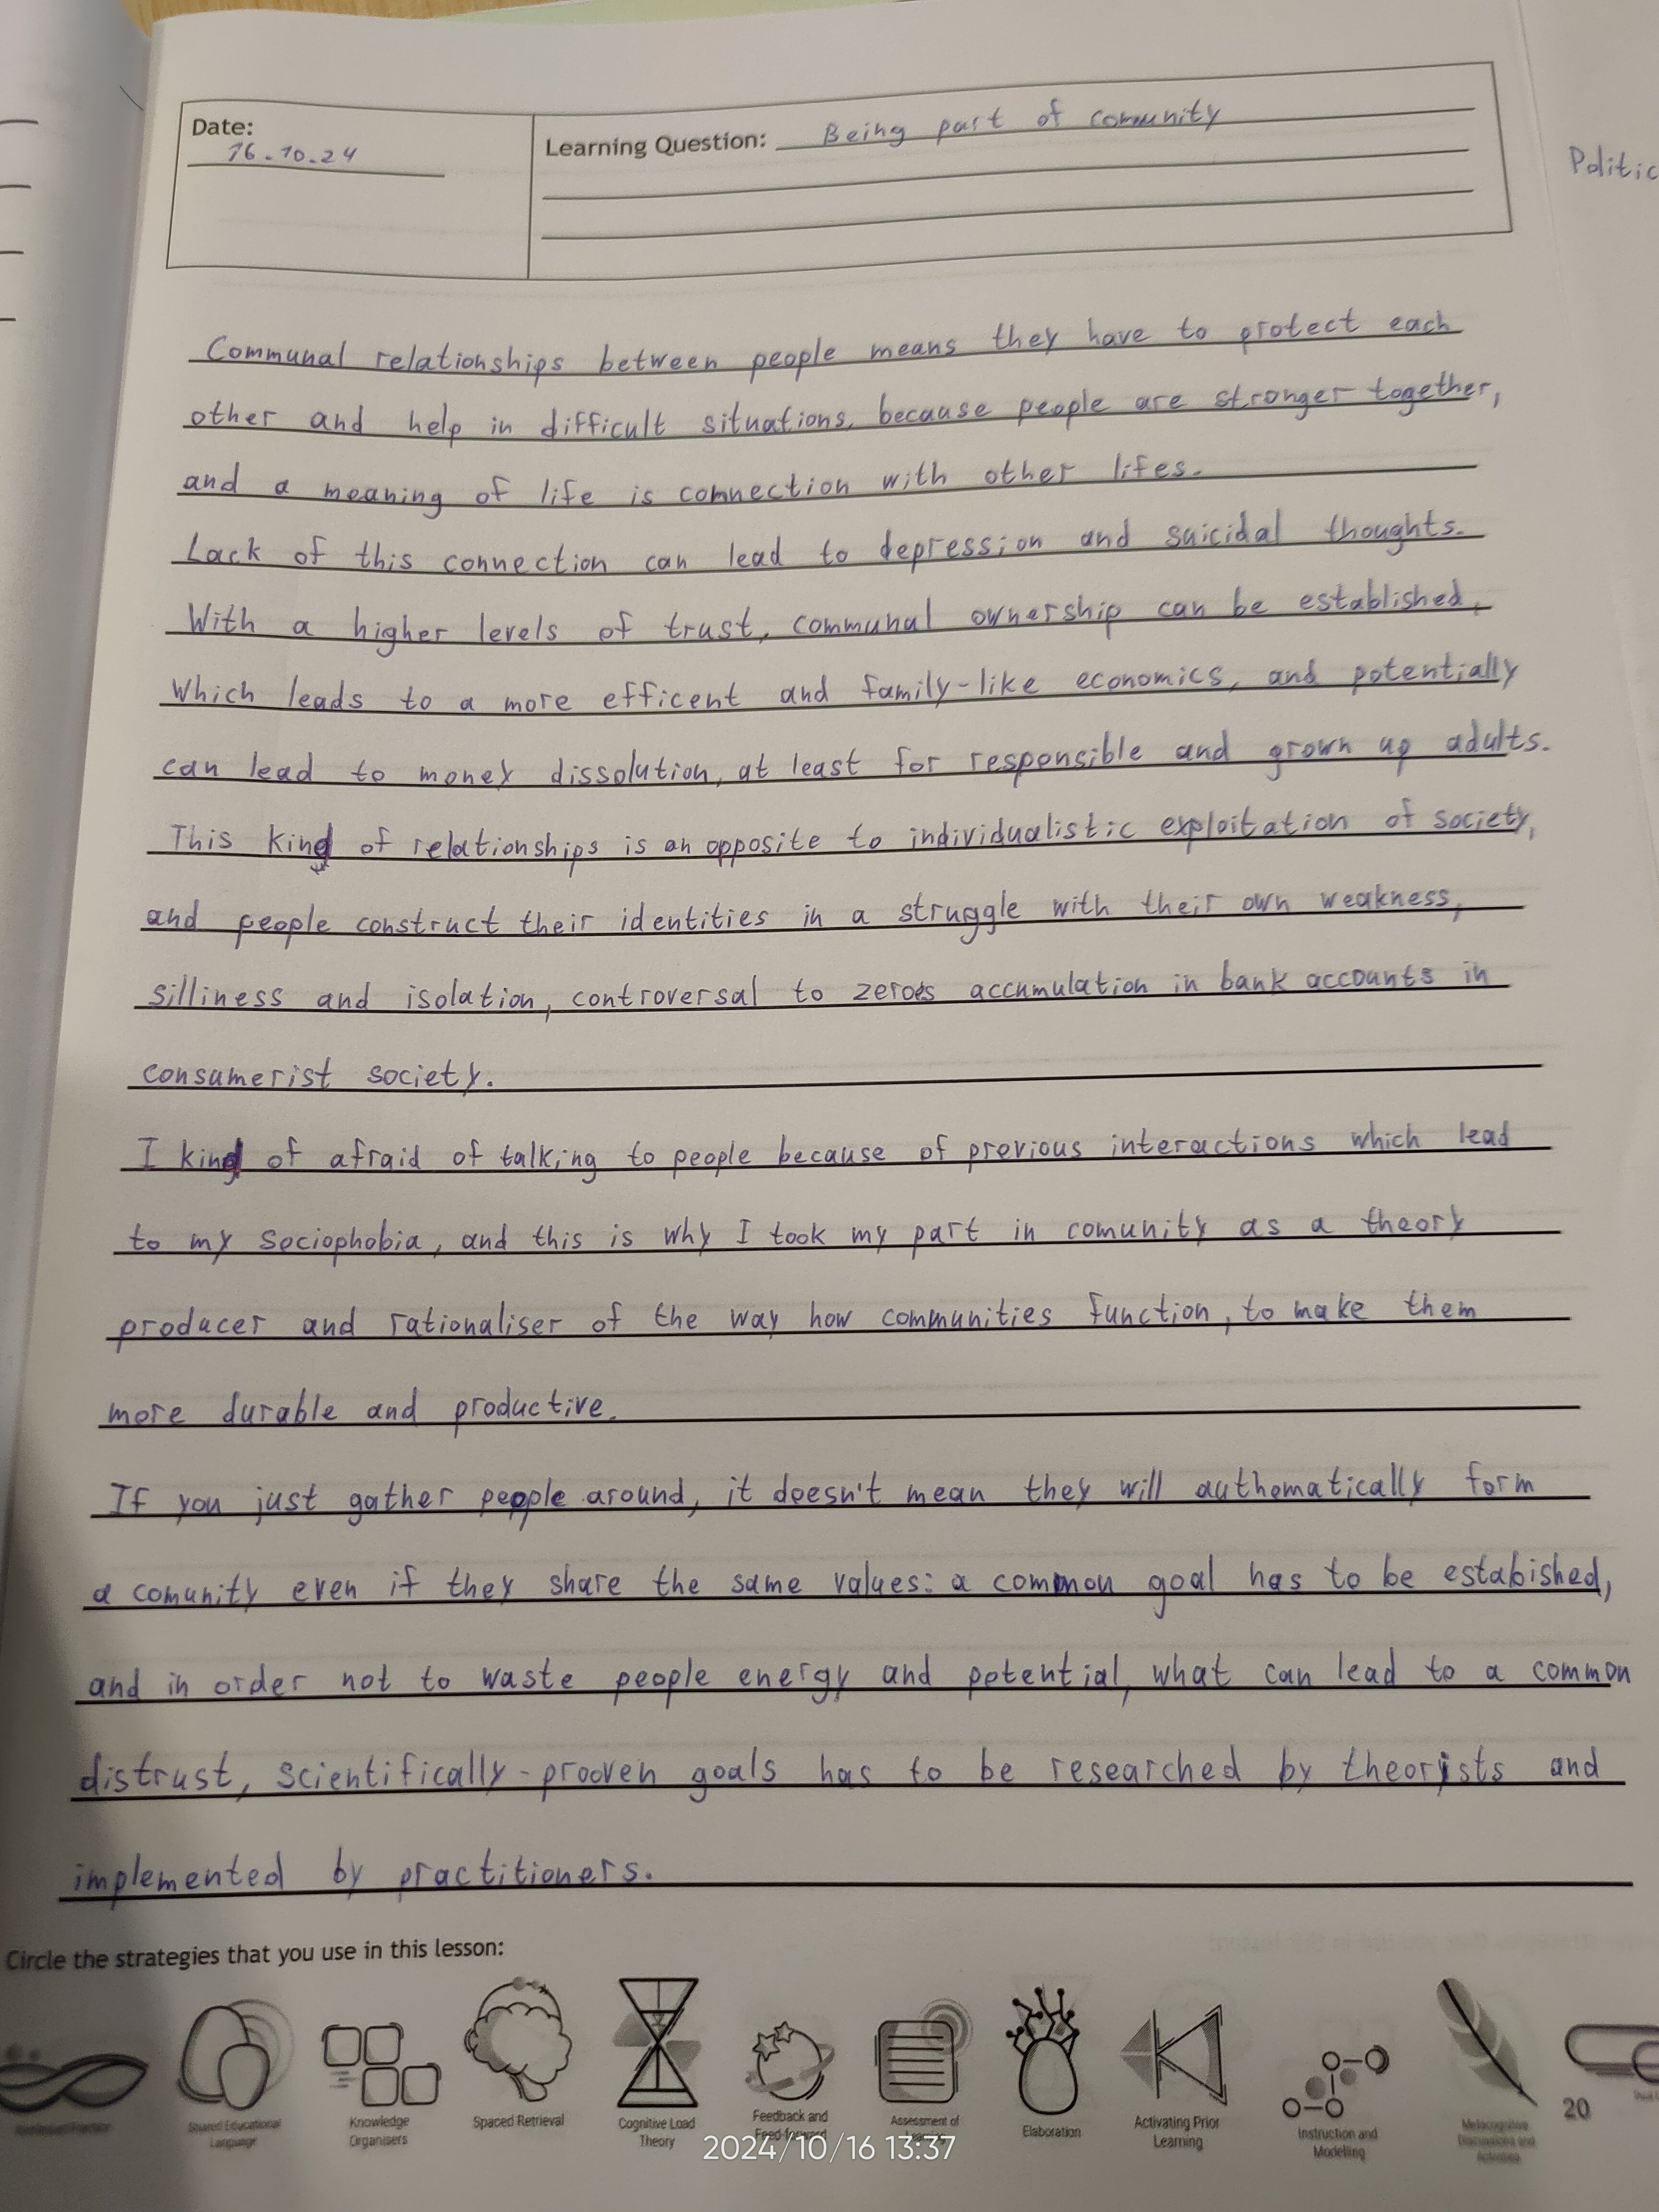 Date:
16.10.24
Learning Question: Being part of comunity
Politic
Communal relationships between people means they have to protect each
other and help in difficult situations, because people are stronger together,
and a meaning of life is connection with other lifes.
Lack of this connection can lead to depression and suicidal thoughts.
With a higher levels of trust, communal ownership can be established,
which leads to a more efficent and family-like economics, and potentially
can lead to money dissolution, at least for responsible and grown up adults.
This kind of relationships is an opposite to individualistic exploitation of society,
and people construct their identities in a struggle with their own weakness,
silliness and isolation, controversal to zeroes accumulation in bank accounts in
consumerist society.
I kind of afraid of talking to people because of previous interactions which lead
to my sociophobia, and this is why I took my part in comunity as a theory
producer and rationaliser of the way how communities function, to make them
more durable and productive.
If you just gather people around, it doesn't mean they will authomatically form
a comunity even if they share the same values: a common goal has to be estabished,
and in order not to waste people energy and potential, what can lead to a common
distrust, scientifically-prooven goals has to be researched by theorists and
implemented by practitioners.
Circle the strategies that you use in this lesson:
Shared Educational
Language
Knowledge
Organisers
Spaced Retrieval
Cognitive Load
Theory
Feedback and
Feed-forward
Assessment of
Learning
Elaboration
Activating Prior
Learning
Instruction and
Modelling
Metacognitive
Discussions and
Activities
20
2024/10/16 13:37